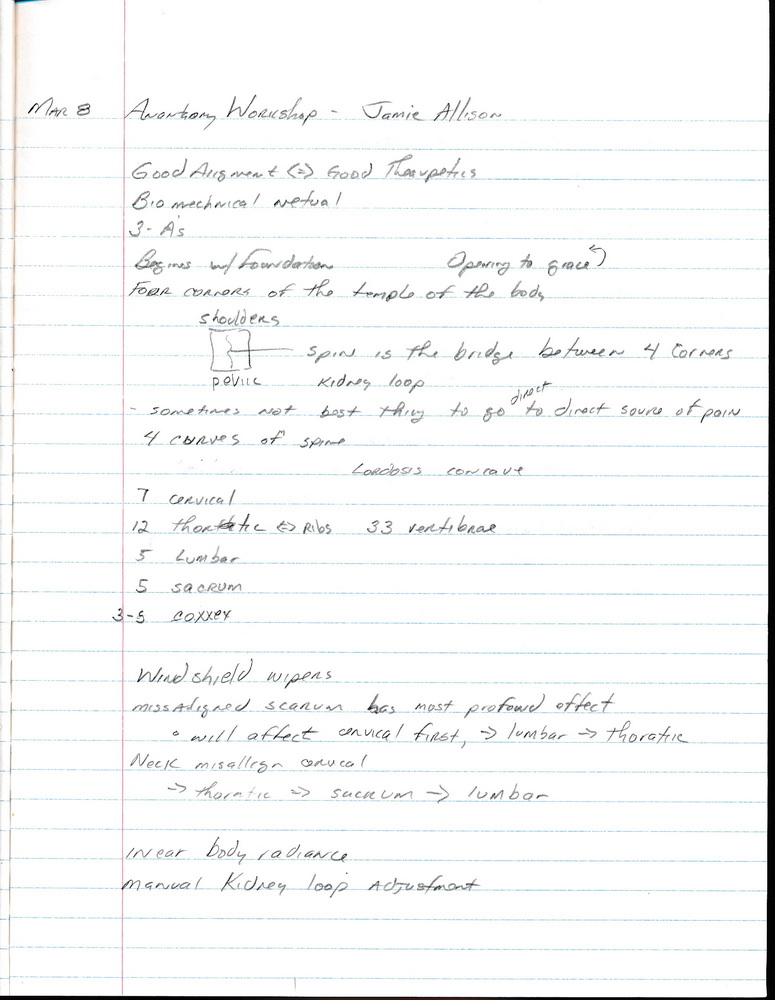 MAR 8 Anantomy Workshop - Jamie Allison
Good Alignment <=> Good Theaupetics
Bio mechanical netual
3- A's
Begines w/ Foundation Opening to grace
Four corners of the temple of the body
shoulders
spin is the bridge between 4 corners
pevlic Kidney loop
direct
- sometimes not best thing to go to direct source of pain
4 curves of spine
Lordosis concave
7 cervical
12 thoratic <=> Ribs 33 vertibrae
5 Lumbar
5 sacrum
3-5 coxxex
Windshield wipers
missaligned scarum has most profowd effect
° will affect cervical first, -> lumbar -> thoratic
Neck misallegn cervical
-> thoratic => sacrum -> lumbar
Inear body radiance
manual Kidney loop Adjustment